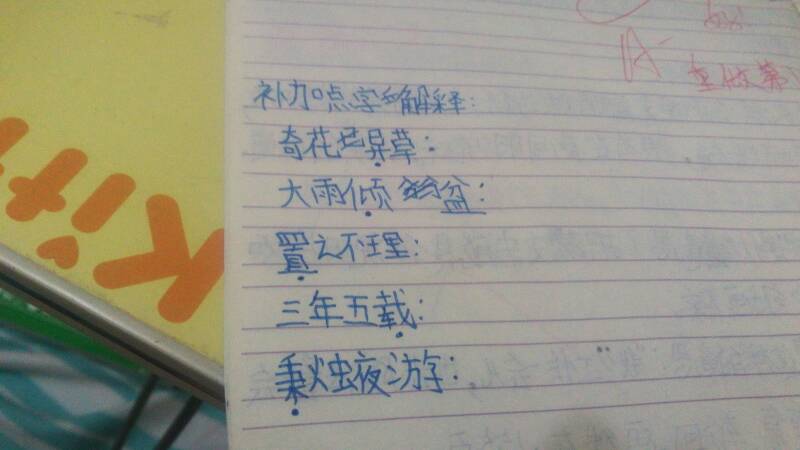 A-
重做第
补加点字的解释:
奇花异草:
大雨倾盆:
置之不理:
三年五载:
秉烛夜游:
Kitt